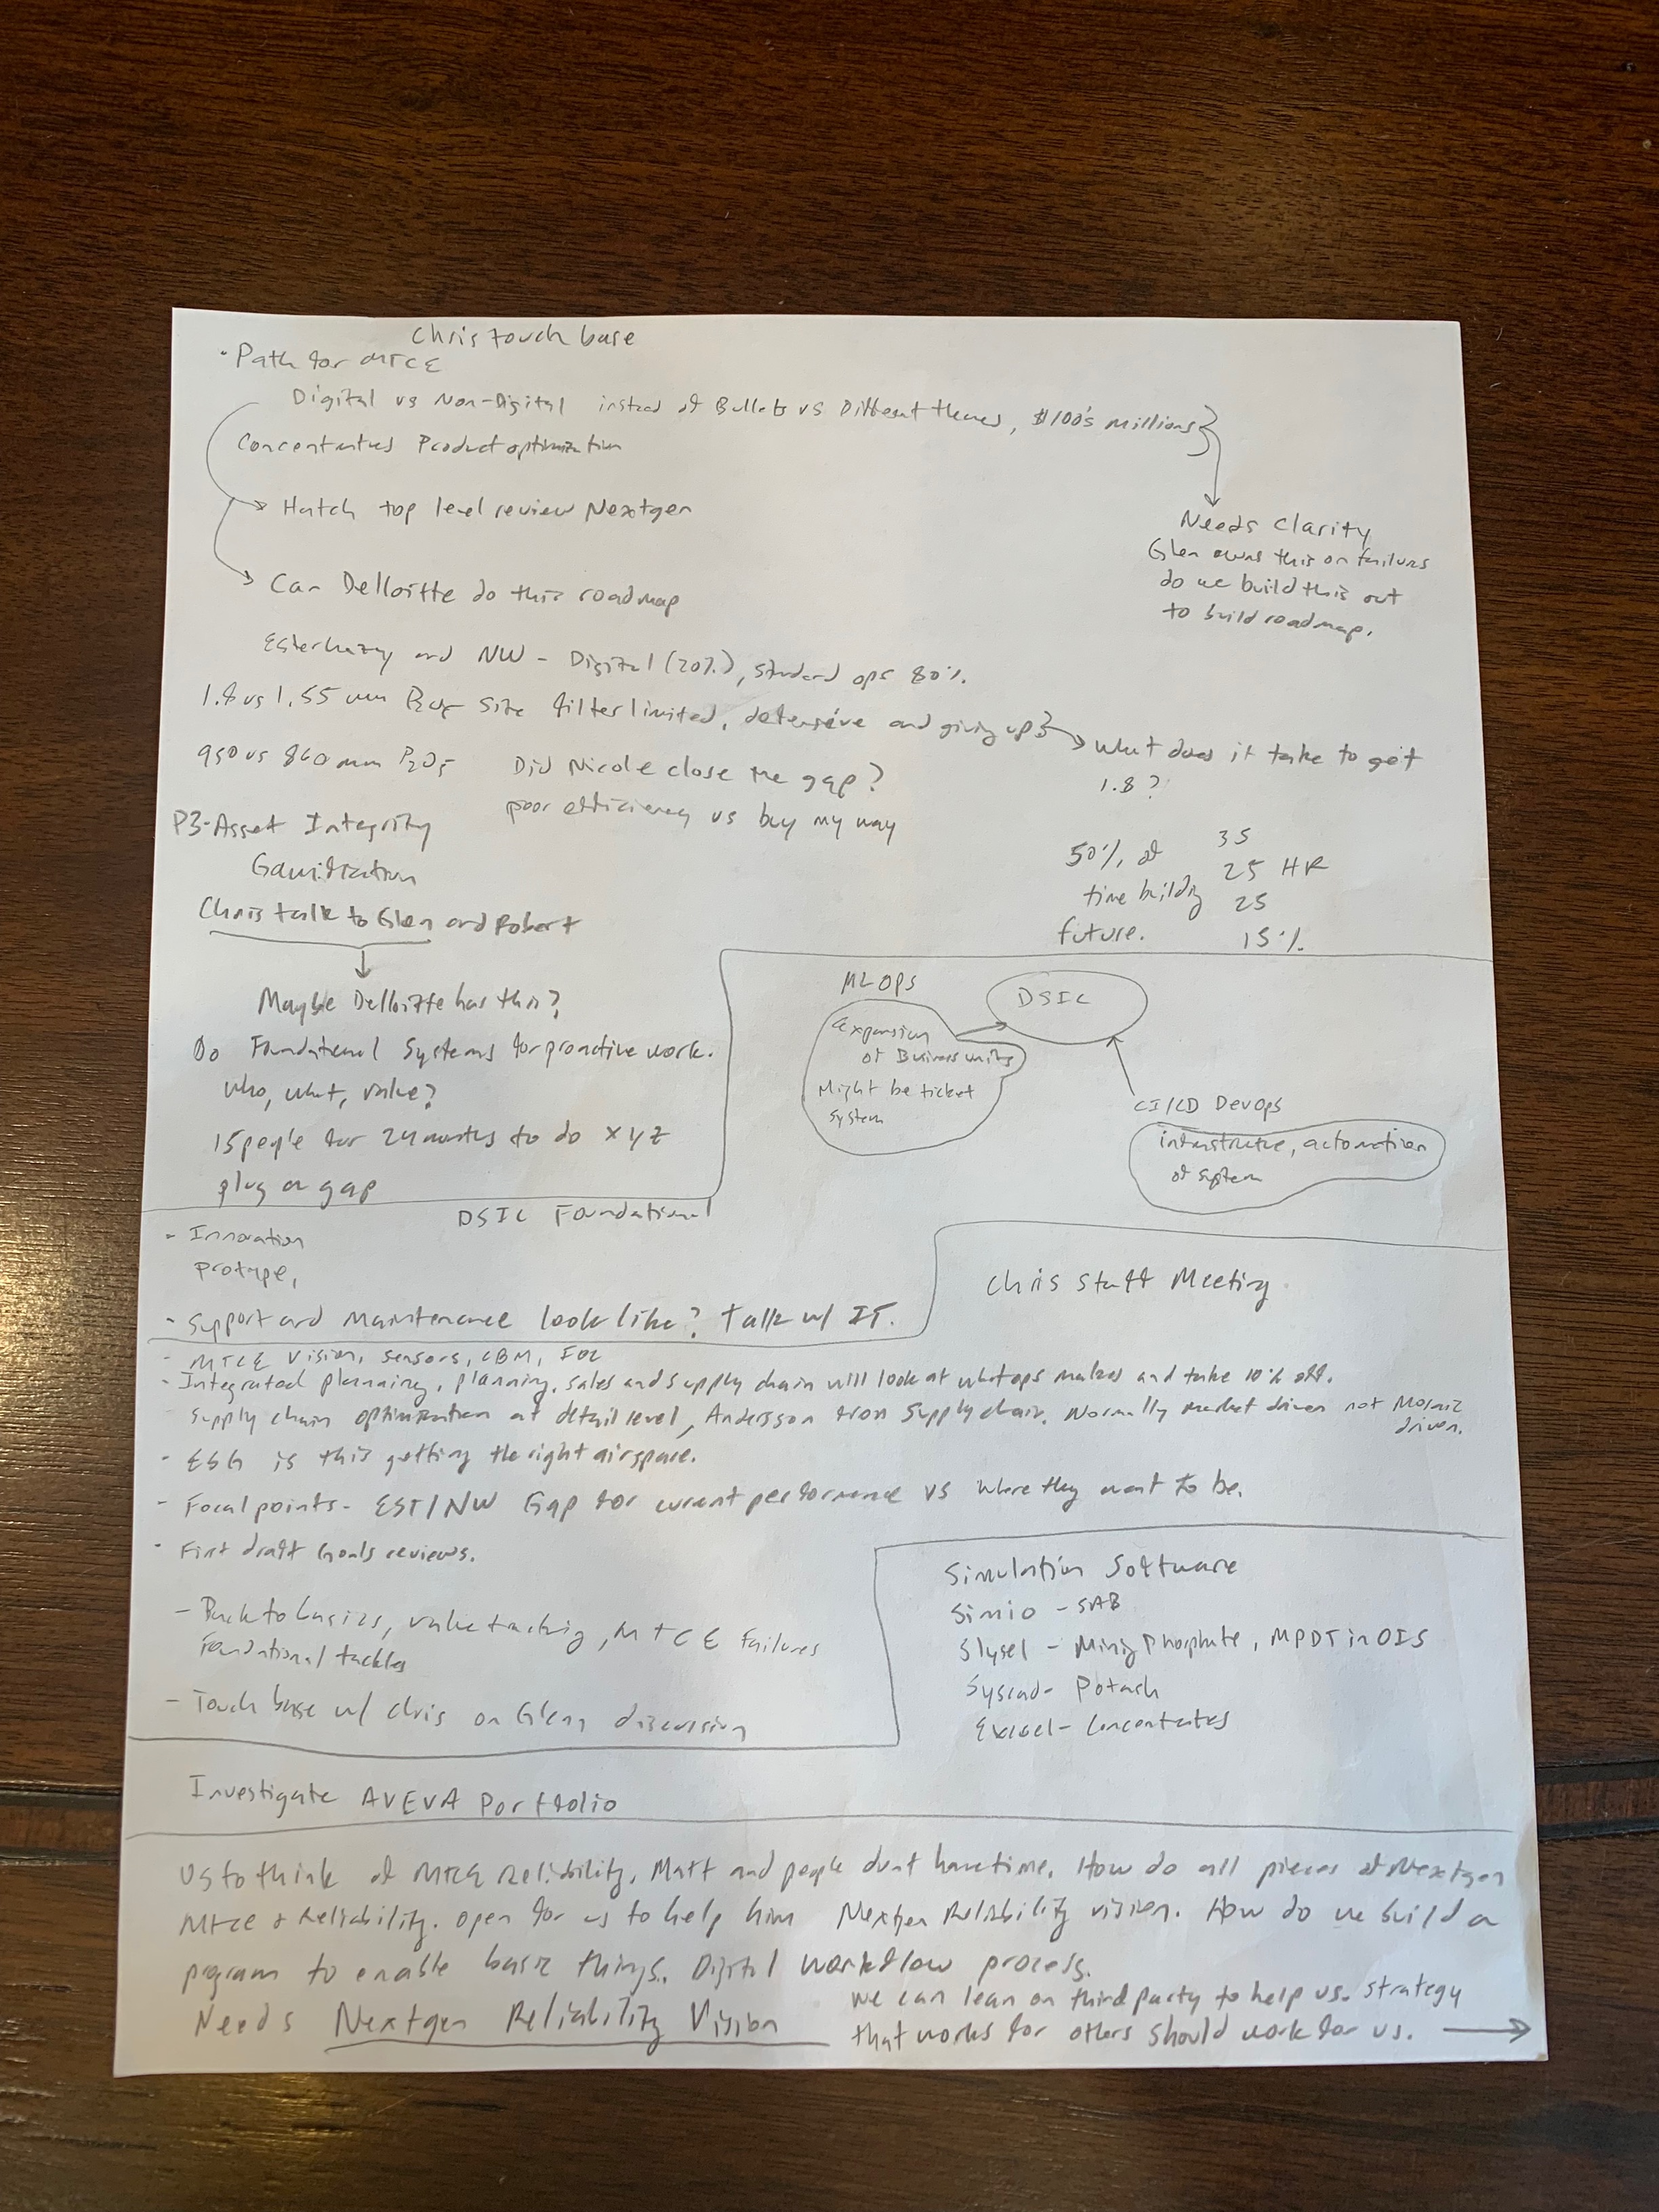 Chris touch base
· Path for MTCE
Digital vs Non-Digital instead of Bullets vs Different themes, $100's millions
Concentrates Product optimization
Hatch top level review Nextgen
Needs Clarity
Glen owns this on failures
do we build this out
to build roadmap.
Can Delloitte do this roadmap
Esterhazy and NW - Digital (20%), standard ops 80%.
1.8 vs 1.55 mm Size filter limited, defensive and giving up
what does it take to get
1.8?
950 vs 860 mm P2O5
Did Nicole close the gap?
poor efficiency vs buy my way
P3-Asset Integrity
Gamification
Chris talk to Glen and Robert
50% of
time building
future.
35
25 HR
25
15%
Maybe Delloitte has this?
Do Foundational Systems for proactive work.
who, what, value?
15 people for 24 months to do xyz
plug on gap
MLOPS
DSIC
expansion
of Business units
Might be ticket
system
CI/CD DevOps
infrastructure, automation
of system
DSIC Foundational
- Innovation
protype,
- Support and Maintenance look like? Talk w/ IT.
Chris Staff Meeting
- MTCE Vision, sensors, CBM, IOC
- Integrated planning, planning, sales and supply chain will look at what ops makes and take 10% off.
Supply chain optimization at detail level, Andersson from Supply chain. Normally market driven not Mosaic
driven.
- ESG is this getting the right airspace.
- Focal points - EST/NW Gap for current performance vs where they want to be.
- First draft Goals reviews.
- Back to basics, value tracking, MTCE Failures
Foundational tackles
- Touch base w/ Chris on Glenn discussion
Simulation Software
Simio - SAB
Slysel - Mining Phosphate, MPDT in OIS
Syscad - Potash
Excel - Concentrates
Investigate AVEVA Portfolio
Us to think of MTCE Reliability. Matt and people dont have time. How do all pieces of Nextgen
MTCE & Reliability. open for us to help him Nextgen Reliability vision. How do we build a
program to enable basic things. Digital workflow process.
Needs Nextgen Reliability Vision
we can lean on third party to help us. strategy
that works for others should work for us.